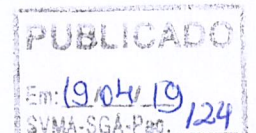 PUBLICADO
Em: 19/04/19
SVMA-SGA-Pag. 124